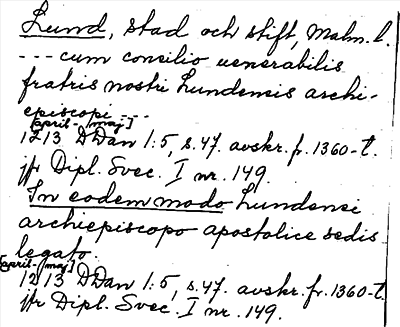 Lund, stad och stift, Malm. l.
--- cum consilio uenerabilis
fratris nostri Lundensis archi-
episcopi ---
[april - maj]
1213 DDan 1:5, s. 47. avskr. fr. 1360-t.
jfr Dipl. Svec. I nr. 149.
In eodem modo Lundensi
archiepiscopo apostolice sedis
legato.
[april - maj]
1213 DDan 1:5, s. 47. avskr. fr. 1360-t.
jfr Dipl. Svec. I nr. 149.